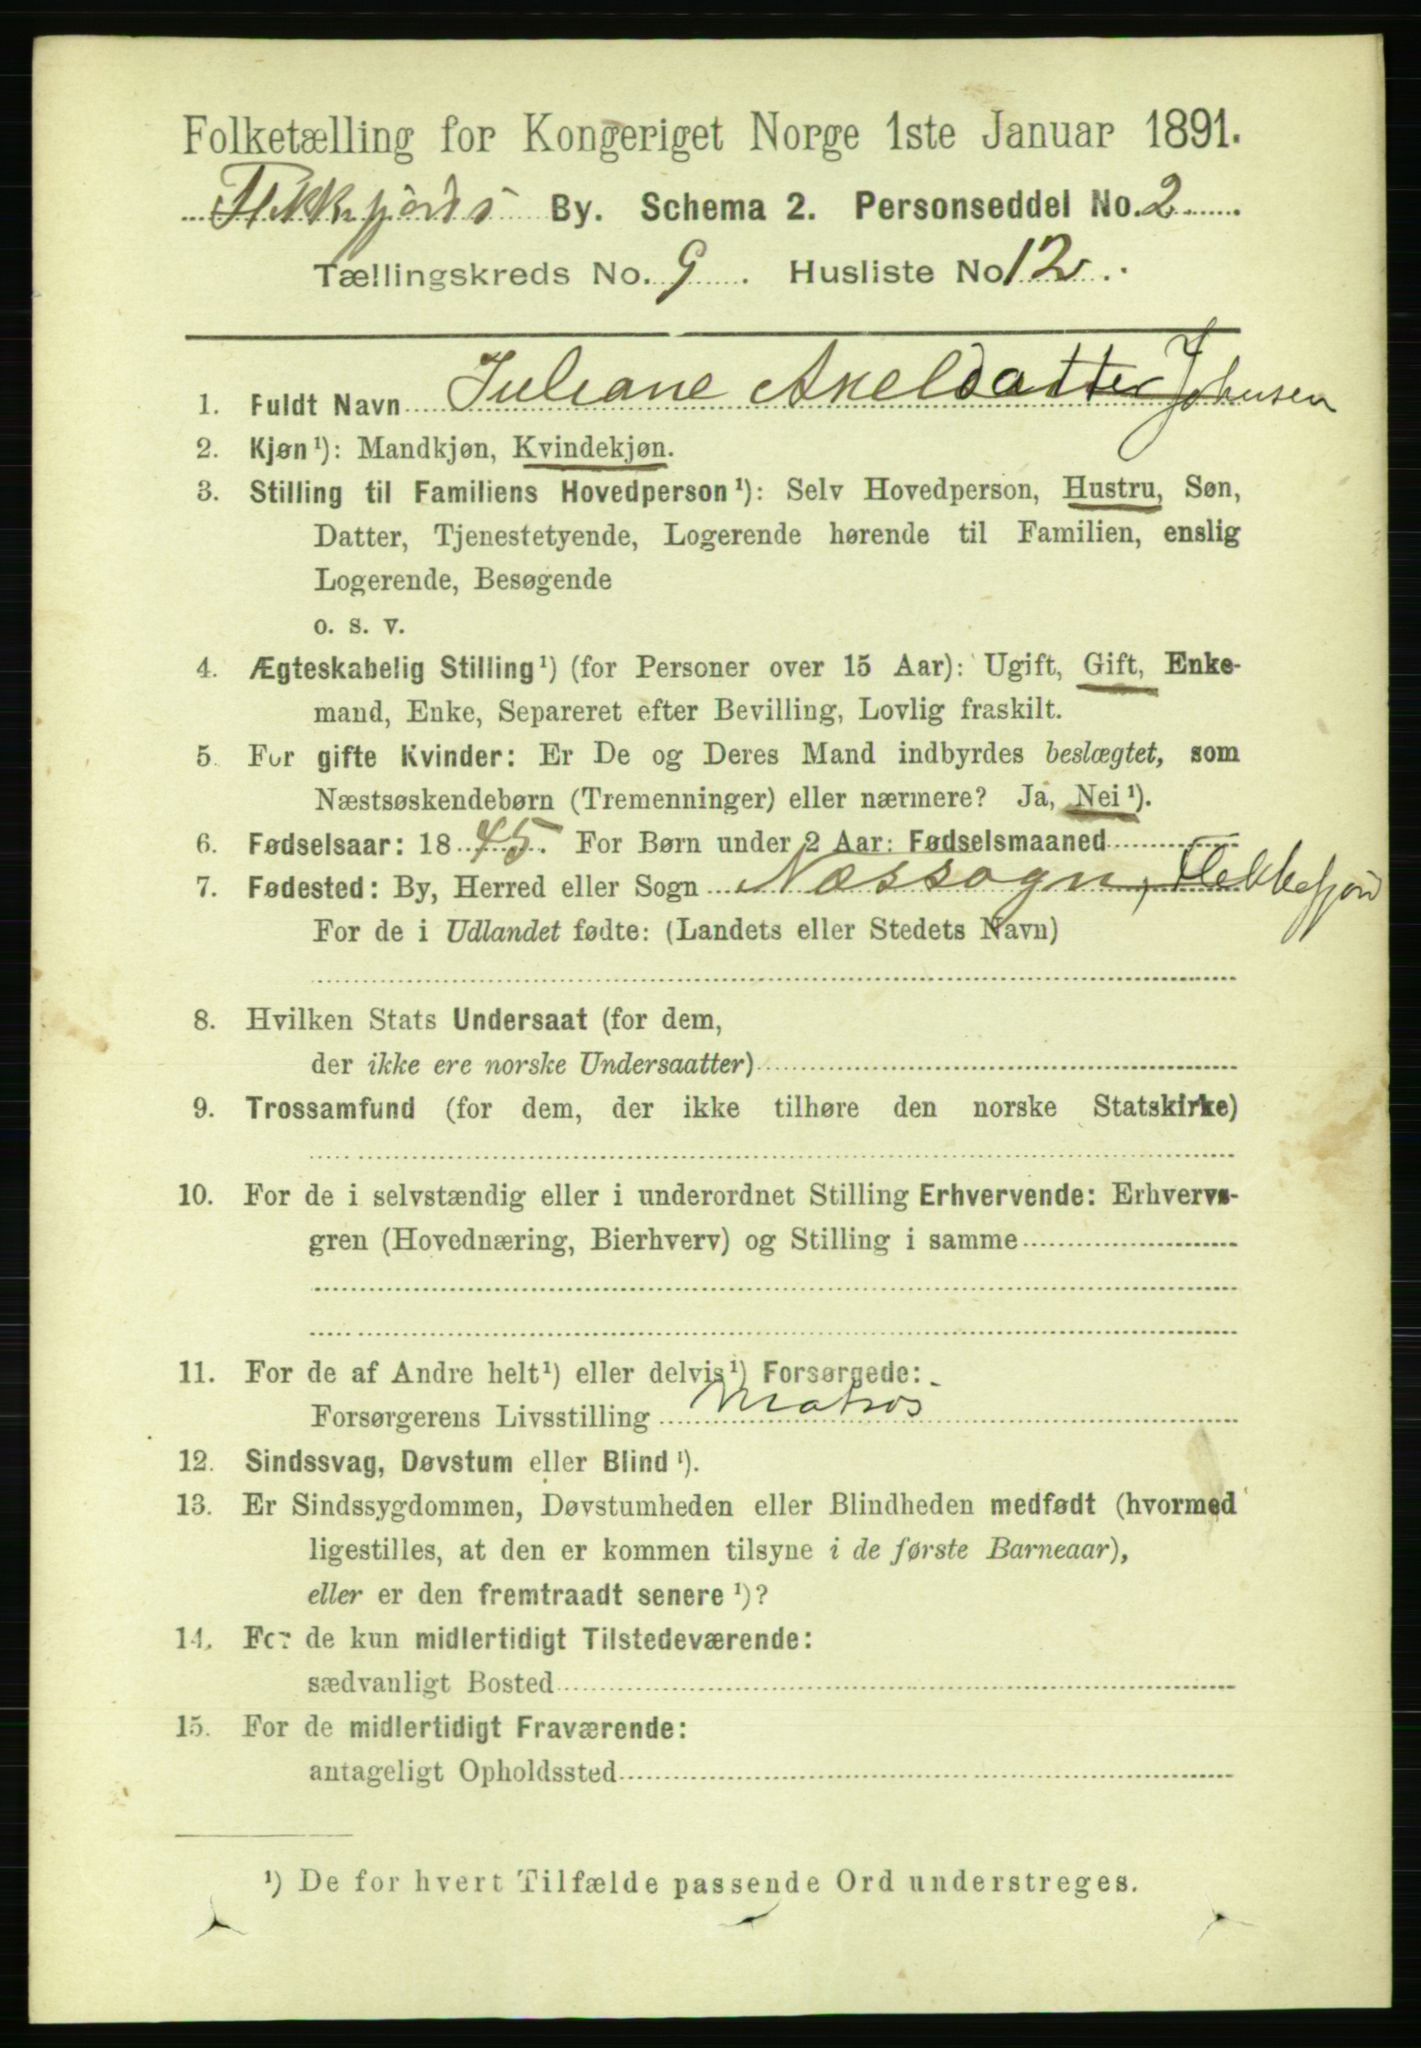 Folketælling for Kongeriget Norge 1ste Januar 1891.
Flekkefjords By. Schema 2. Personseddel No. 2
Tællingskreds No. 9. Husliste No 12.
1. Fuldt Navn Juliane Axeldatter Johnsen
2. Kjøn¹): Mandkjøn, Kvindekjøn.
3. Stilling til Familiens Hovedperson¹): Selv Hovedperson, Hustru, Søn,
Datter, Tjenestetyende, Logerende hørende til Familien, enslig
Logerende, Besøgende
o. s. v.
4. Ægteskabelig Stilling¹) (for Personer over 15 Aar): Ugift, Gift, Enke-
mand, Enke, Separeret efter Bevilling, Lovlig fraskilt.
5. For gifte Kvinder: Er De og Deres Mand indbyrdes beslægtet, som
Næstsøskendebørn (Tremenninger) eller nærmere? Ja, Nei¹).
6. Fødselsaar: 1845. For Børn under 2 Aar: Fødselsmaaned
7. Fødested: By, Herred eller Sogn Næssogn, Flekkefjord
For de i Udlandet fødte: (Landets eller Stedets Navn)
8. Hvilken Stats Undersaat (for dem,
der ikke ere norske Undersaatter)
9. Trossamfund (for dem, der ikke tilhøre den norske Statskirke)
10. For de i selvstændig eller i underordnet Stilling Erhvervende: Erhvervs-
gren (Hovednæring, Bierhverv) og Stilling i samme
11. For de af Andre helt¹) eller delvis¹) Forsørgede:
Forsørgerens Livsstilling Matros
12. Sindssvag, Døvstum eller Blind¹).
13. Er Sindssygdommen, Døvstumheden eller Blindheden medfødt (hvormed
ligestilles, at den er kommen tilsyne i de første Barneaar),
eller er den fremtraadt senere¹)?
14. For de kun midlertidigt Tilstedeværende:
sædvanligt Bosted
15. For de midlertidigt Fraværende:
antageligt Opholdssted
¹) De for hvert Tilfælde passende Ord understreges.